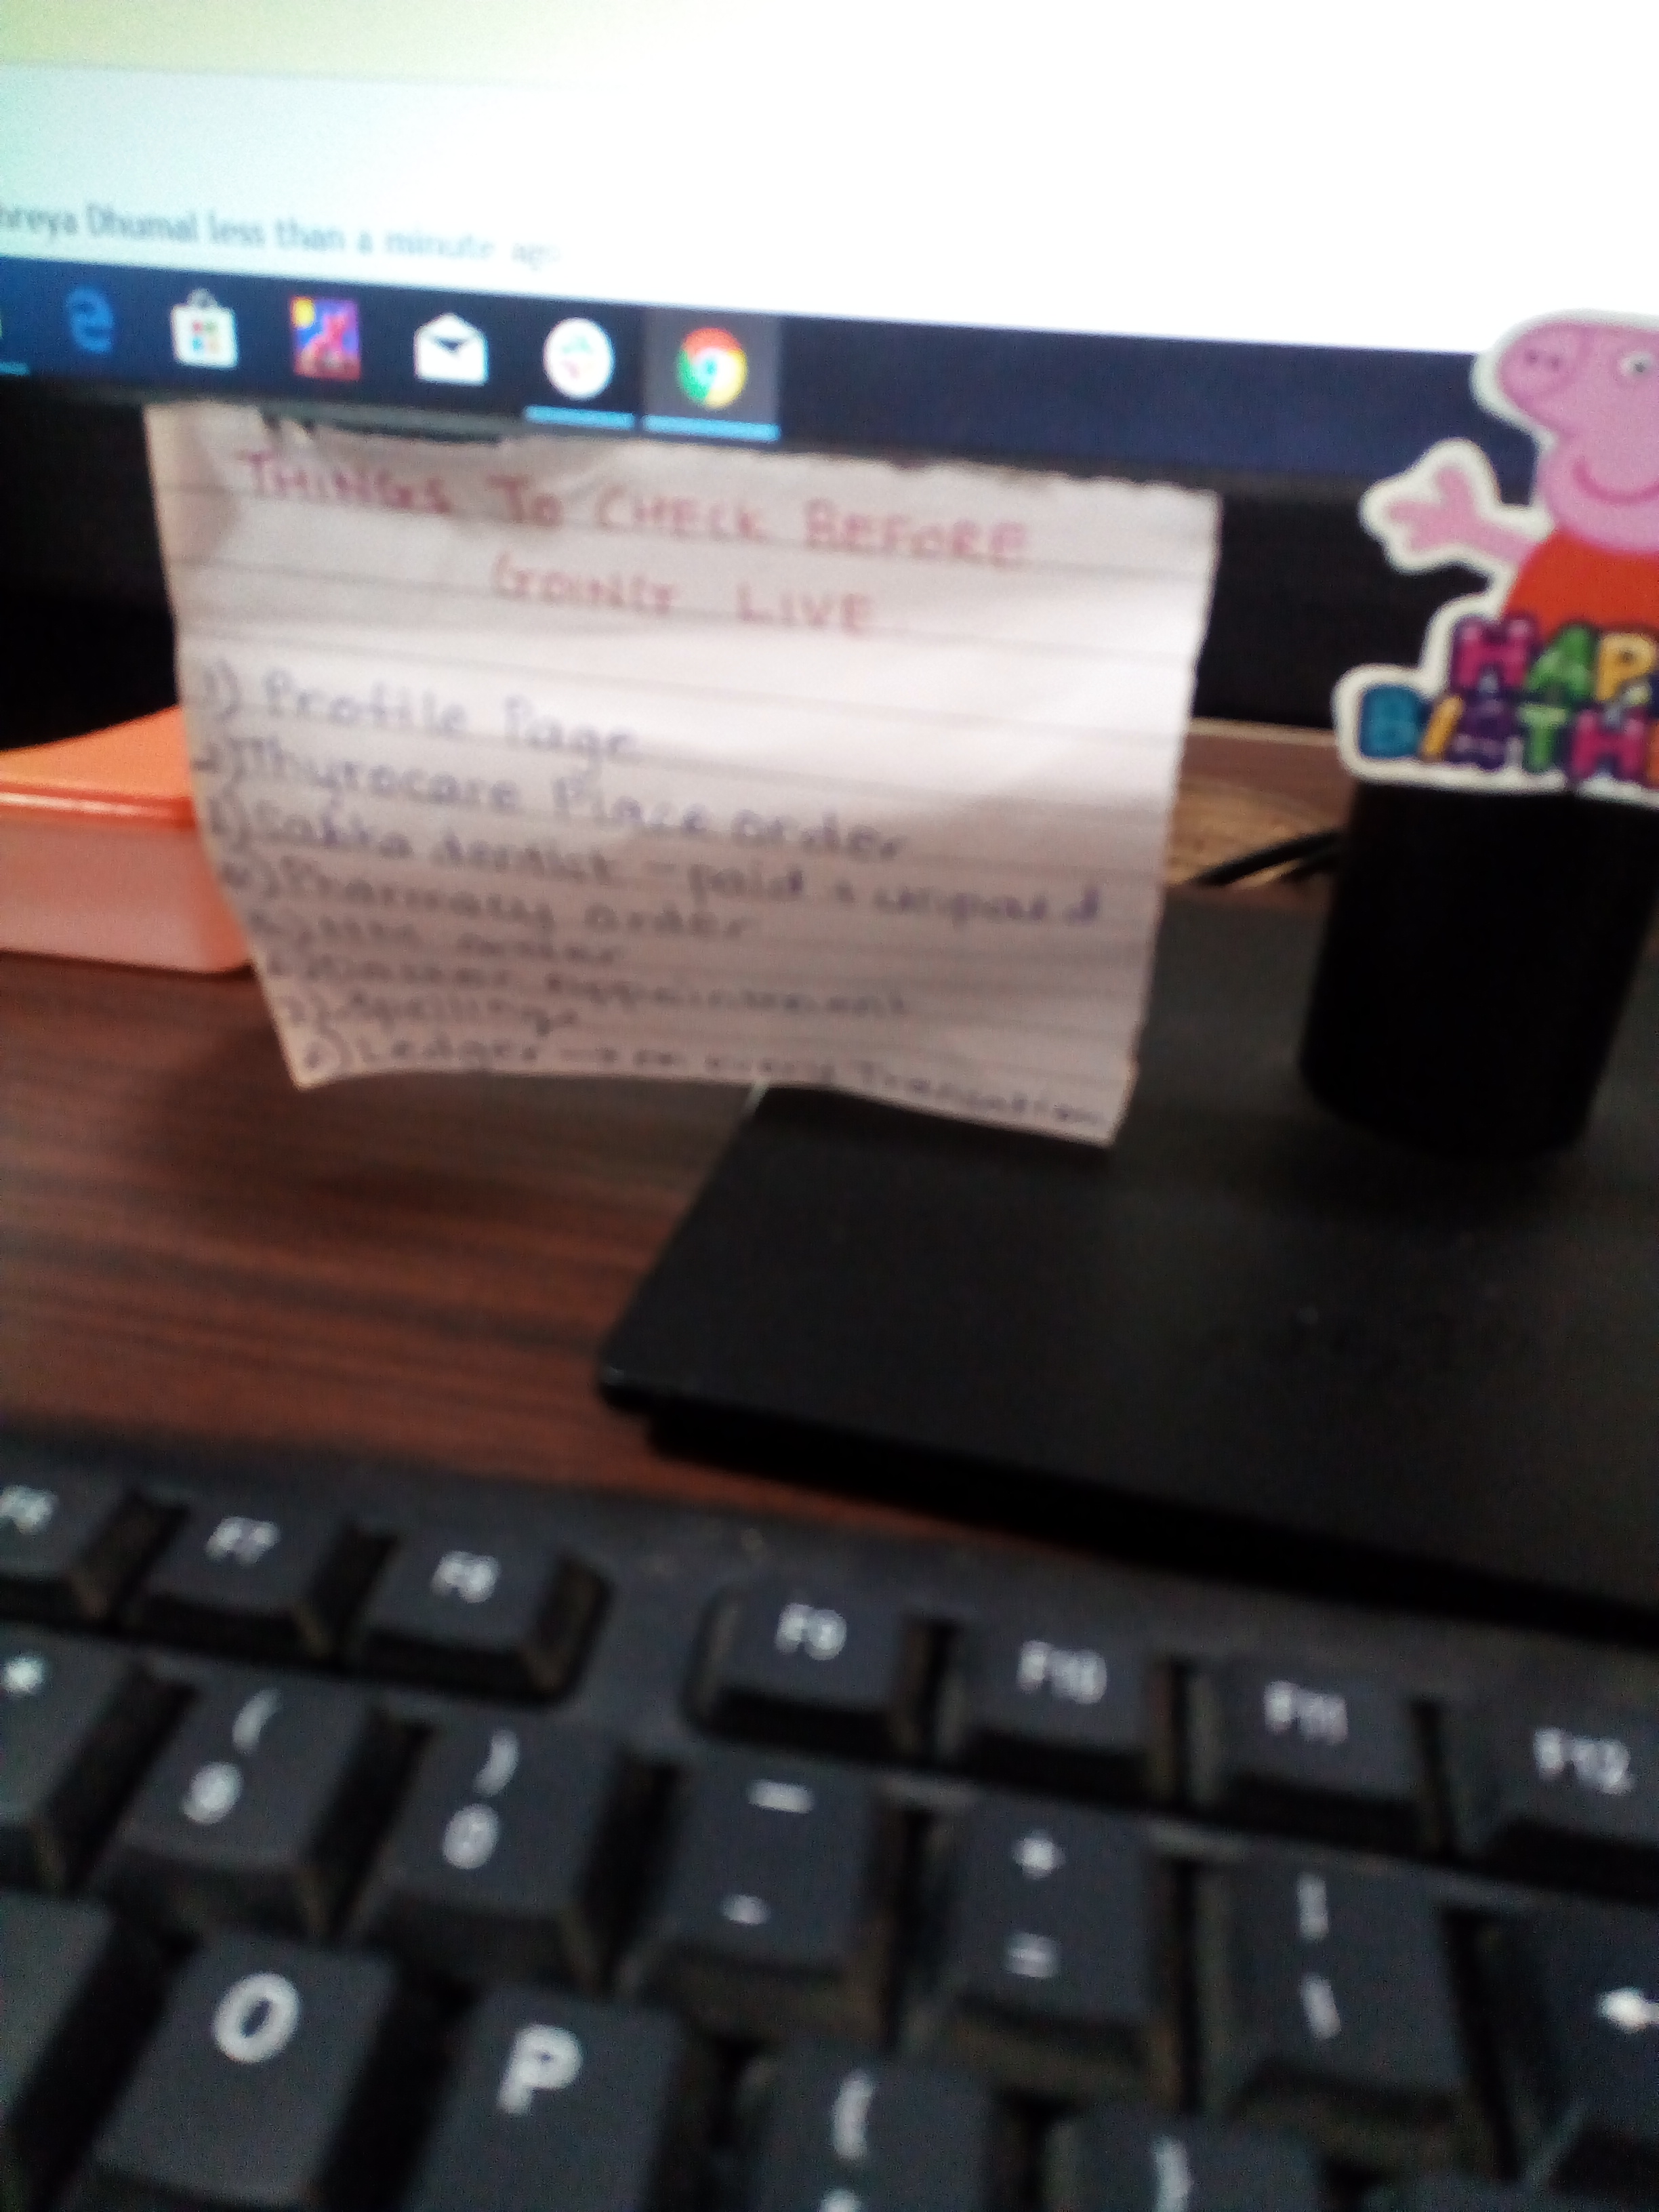 Dhumal less than a minute ago
THINGS TO CHECK BEFORE
GOING LIVE
1) Profile Page
2) Thyrocare Place order
3) Sabka dentist - paid & unpaid
4) Pharmacy order
5) order
6) appointment
7) Spellings
8) Ledger → on every
HAP
BIRTH
F6 F7 F8 F9 F10 F11 F12
*
( ) — +
9 0 - =
O P {